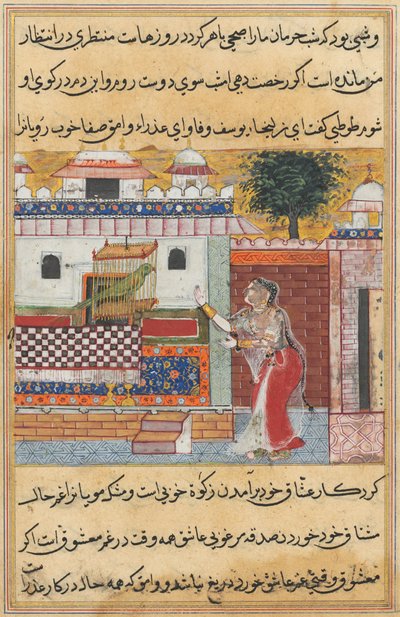 وشبی بود که شب حرمان ما را صبحی باهر کردد روزهاست منتظری در انتظار
من مانده است اکر رخصت دهی امشب سوی دوست روم و این دم در کوی او
شوم طوطی کفت ای زلیخا یوسف وفا و ای عذراء وامق صفا خوب رویانرا
کرد کار عشاق خود برآمدن زکوة خوبی است و مشک مویانرا غم حال
مشتاق خود خوردن صدقه مرغوبی عاشق همه وقت در غم معشوق است اکر
معشوق وقتی غم عاشق خورد دریغ نباشد و وامق که همه حال در کار عذراست